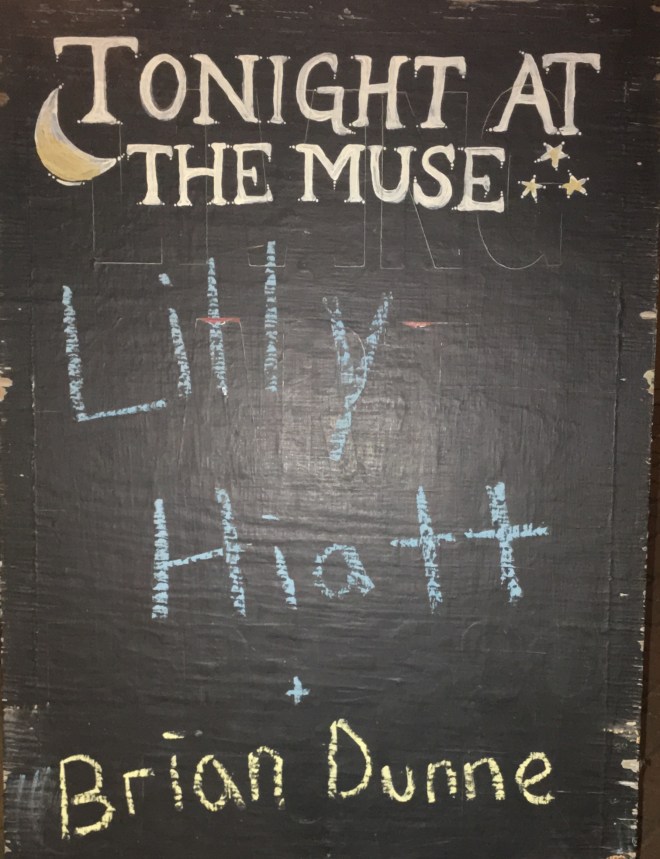 TONIGHT AT
THE MUSE
Lilly
Hiatt
+
Brian Dunne